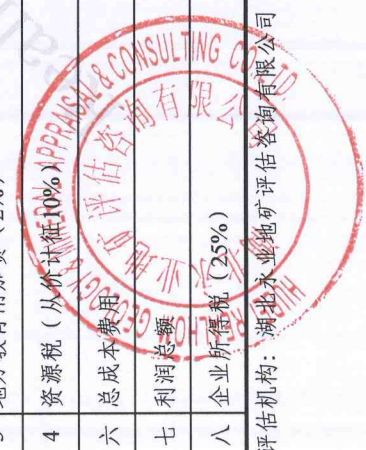 地方教育附加费（2%）
4 资源税（从价计征10%）
六 总成本费用
七 利润总额
八 企业所得税（25%）
评估机构：湖北永业地矿评估咨询有限公司
HUBEI GEOLOGY & MINERAL APPRAISAL & CONSULTING CO.,LTD.
业地矿评估咨询有限公